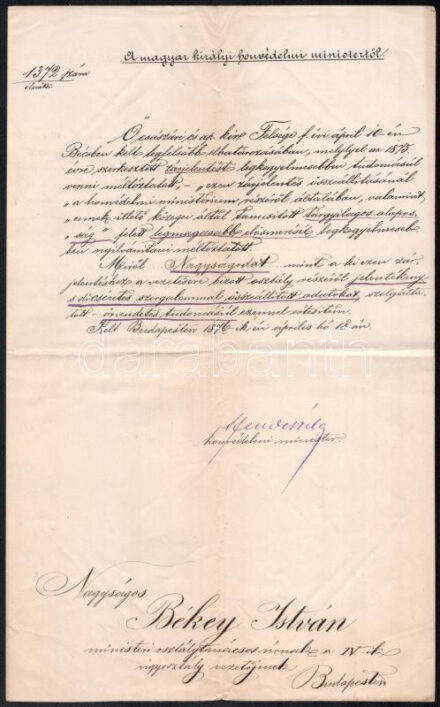 A magyar királyi honvédelmi ministertől.
1372 szám
elnöki.
Ő császári és ap. kir. Felsége f. évi április 10-én
Bécsben kelt legfelsőbb elhatározásában, melylyel az 1875.
évre szerkesztett zárjelentést legkegyelmesebben tudomásúl
venni méltóztatott, – "ezen zárjelentés összeállításánál
"a honvédelmi ministérium részéről általában, valamint
"ennek illető közegei által tanusított tárgyilagos alapos-
"ság" felett legmagasabb elismerését legkegyelmeseb-
ben nyilvánítani méltóztatott.
Miről Nagyságodat mint a ki ezen zár-
jelentéshez a vezetésére bízott osztály részéről jelentékeny
s dicséretes szorgalommal összeállított adatokat szolgálta-
tott – örvendetes tudomásúl ezennel értesítem.
Kelt Budapesten 1876-ik évi április hó 12-én.
honvédelmi minister.
darabanth
Nagyságos
Békey István
ministeri osztálytanácsos úrnak a IV-ik
ügyosztály vezetőjének
Budapesten